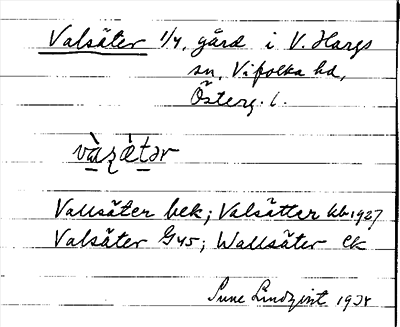 Valsäter 1/4, gård i V. Hargs
sn, Vifolka hd,
Österg. l.
Vallsäter bek; Valsätter kb 1927
Valsäter G45; Wallsäter ek
Sune Lindqvist